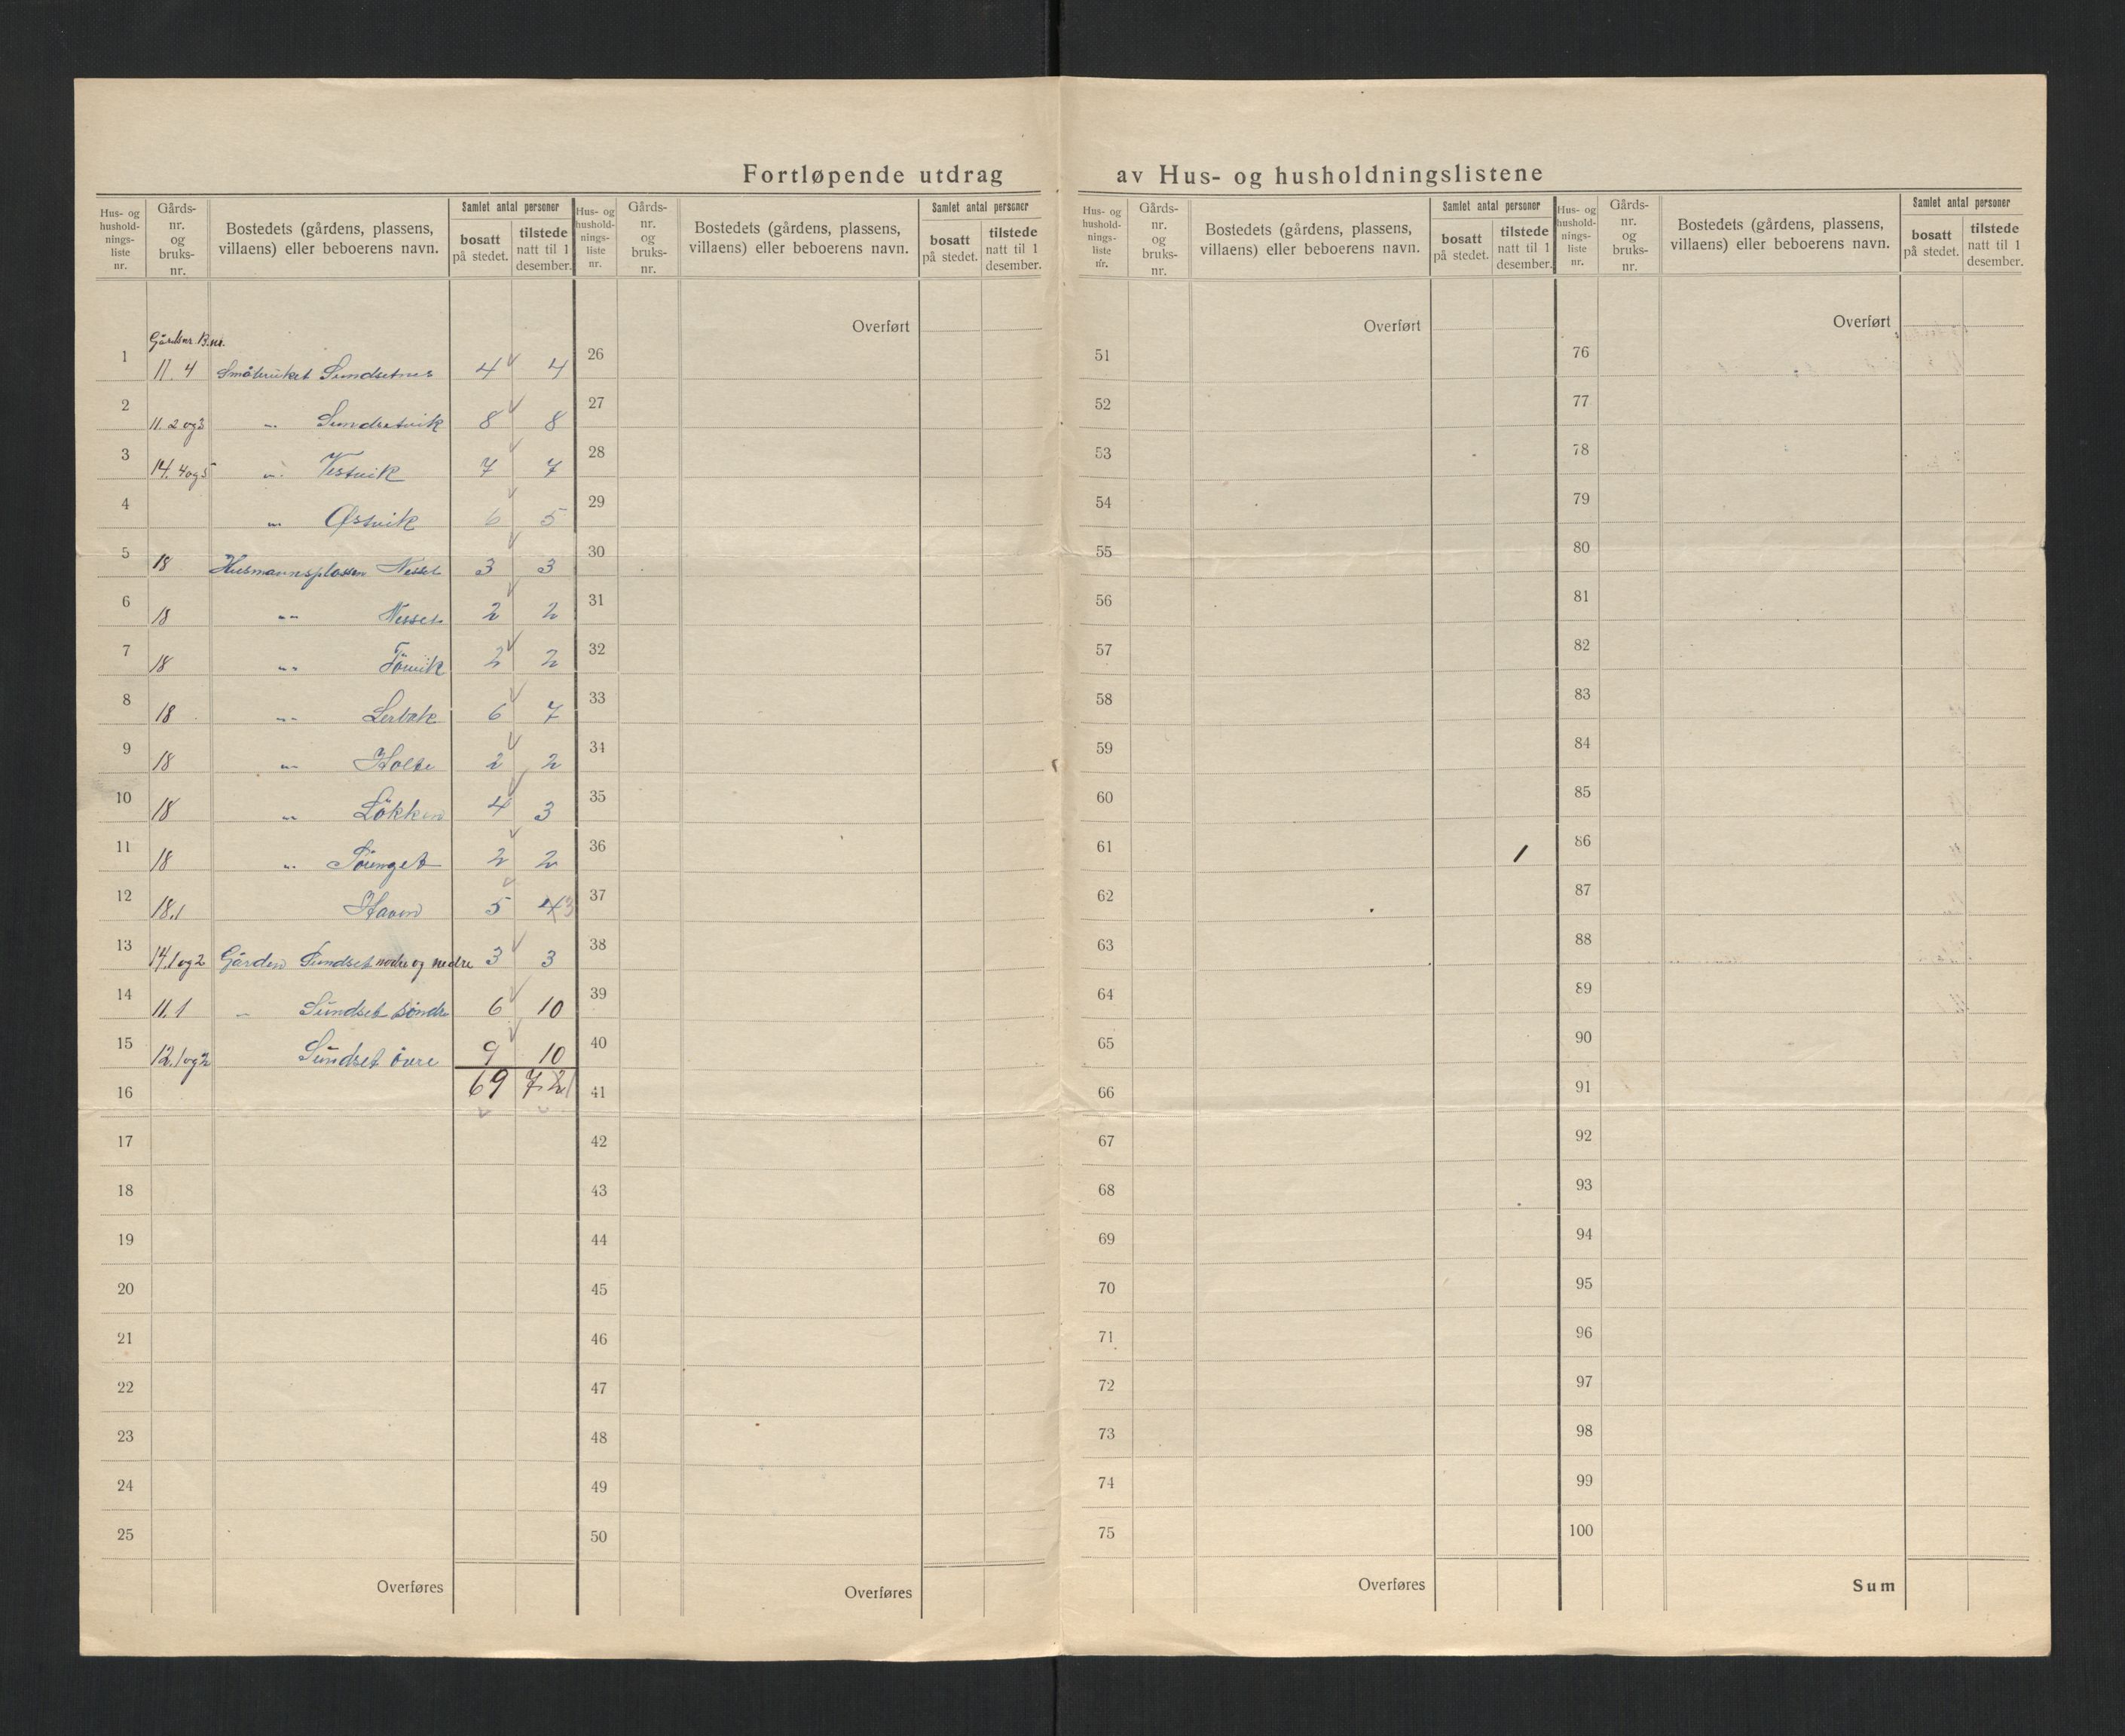 Fortløpende utdrag av Hus- og husholdningslistene
Hus- og hushold-nings-liste nr. Gårds-nr. og bruks-nr. Bostedets (gårdens, plassens, villaens) eller beboerens navn. Samlet antal personer bosatt på stedet. tilstede natt til 1 desember.
Hus- og hushold-nings-liste nr. Gårds-nr. og bruks-nr. Bostedets (gårdens, plassens, villaens) eller beboerens navn. Samlet antal personer bosatt på stedet. tilstede natt til 1 desember.
Hus- og hushold-nings-liste nr. Gårds-nr. og bruks-nr. Bostedets (gårdens, plassens, villaens) eller beboerens navn. Samlet antal personer bosatt på stedet. tilstede natt til 1 desember.
Hus- og hushold-nings-liste nr. Gårds-nr. og bruks-nr. Bostedets (gårdens, plassens, villaens) eller beboerens navn. Samlet antal personer bosatt på stedet. tilstede natt til 1 desember.
Gårdsnr. B.nr.
1 11. 4 Småbruket Sundsetnes 4 4
2 11. 2 og 3 " Sundsetvik 8 8
3 14. 4 og 5 " Vestvik 7 7
4 " Østvik 6 5
5 18 Husmannsplassen Nesset 3 3
6 18 " Nesset 2 2
7 18 " 2 2
8 18 " Lerbak 6 7
9 18 " Holte 2 2
10 18 " Løkken 4 3
11 18 " 2 2
12 18.1 Haven 5 4 3
13 14.1 og 2 Gården Sundset nedre 3 3
14 11.1 " Sundset søndre 6 10
15 12.1 og 2 Sundset øvre 9 10
16 69 72 1
17
18
19
20
21
22
23
24
25
Overføres
Overført
26
27
28
29
30
31
32
33
34
35
36
37
38
39
40
41
42
43
44
45
46
47
48
49
50
Overføres
Overført
51
52
53
54
55
56
57
58
59
60
61
62
63
64
65
66
67
68
69
70
71
72
73
74
75
Overføres
Overført
76
77
78
79
80
81
82
83
84
85
86
87
88
89
90
91
92
93
94
95
96
97
98
99
100
Sum